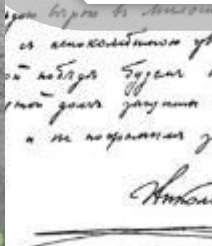 вѣрю въ милос
съ непоколебимою ув
ой побѣдѣ будемъ
долгъ защиты
и не посрамимъ з
Никол